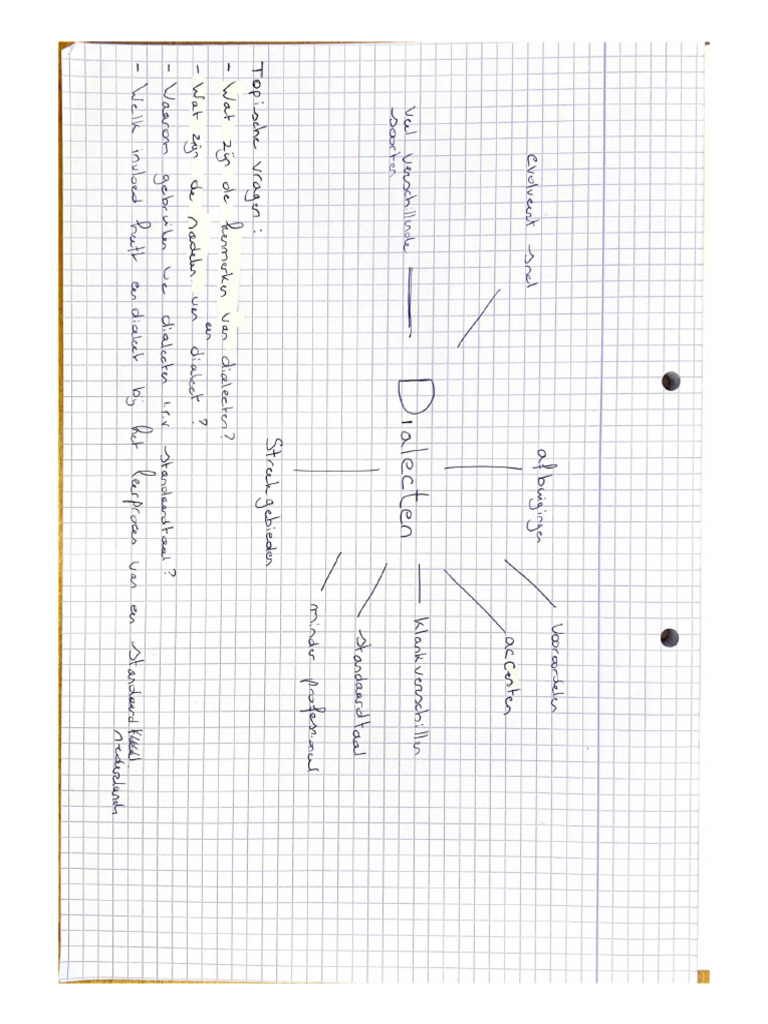 evolueert snel
afbuigingen
vooroordelen
accenten
veel verschillende
soorten
Dialecten
klankverschillen
standaardtaal
minder professioneel
Streekgebieden
Topische vragen:
- Wat zijn de kenmerken van dialecten?
- Wat zijn de nadelen van een dialect?
- Waarom gebruiken we dialecten i.p.v standaardtaal?
- Welk invloed heeft een dialect bij het leerproces van een standaard
nederlands